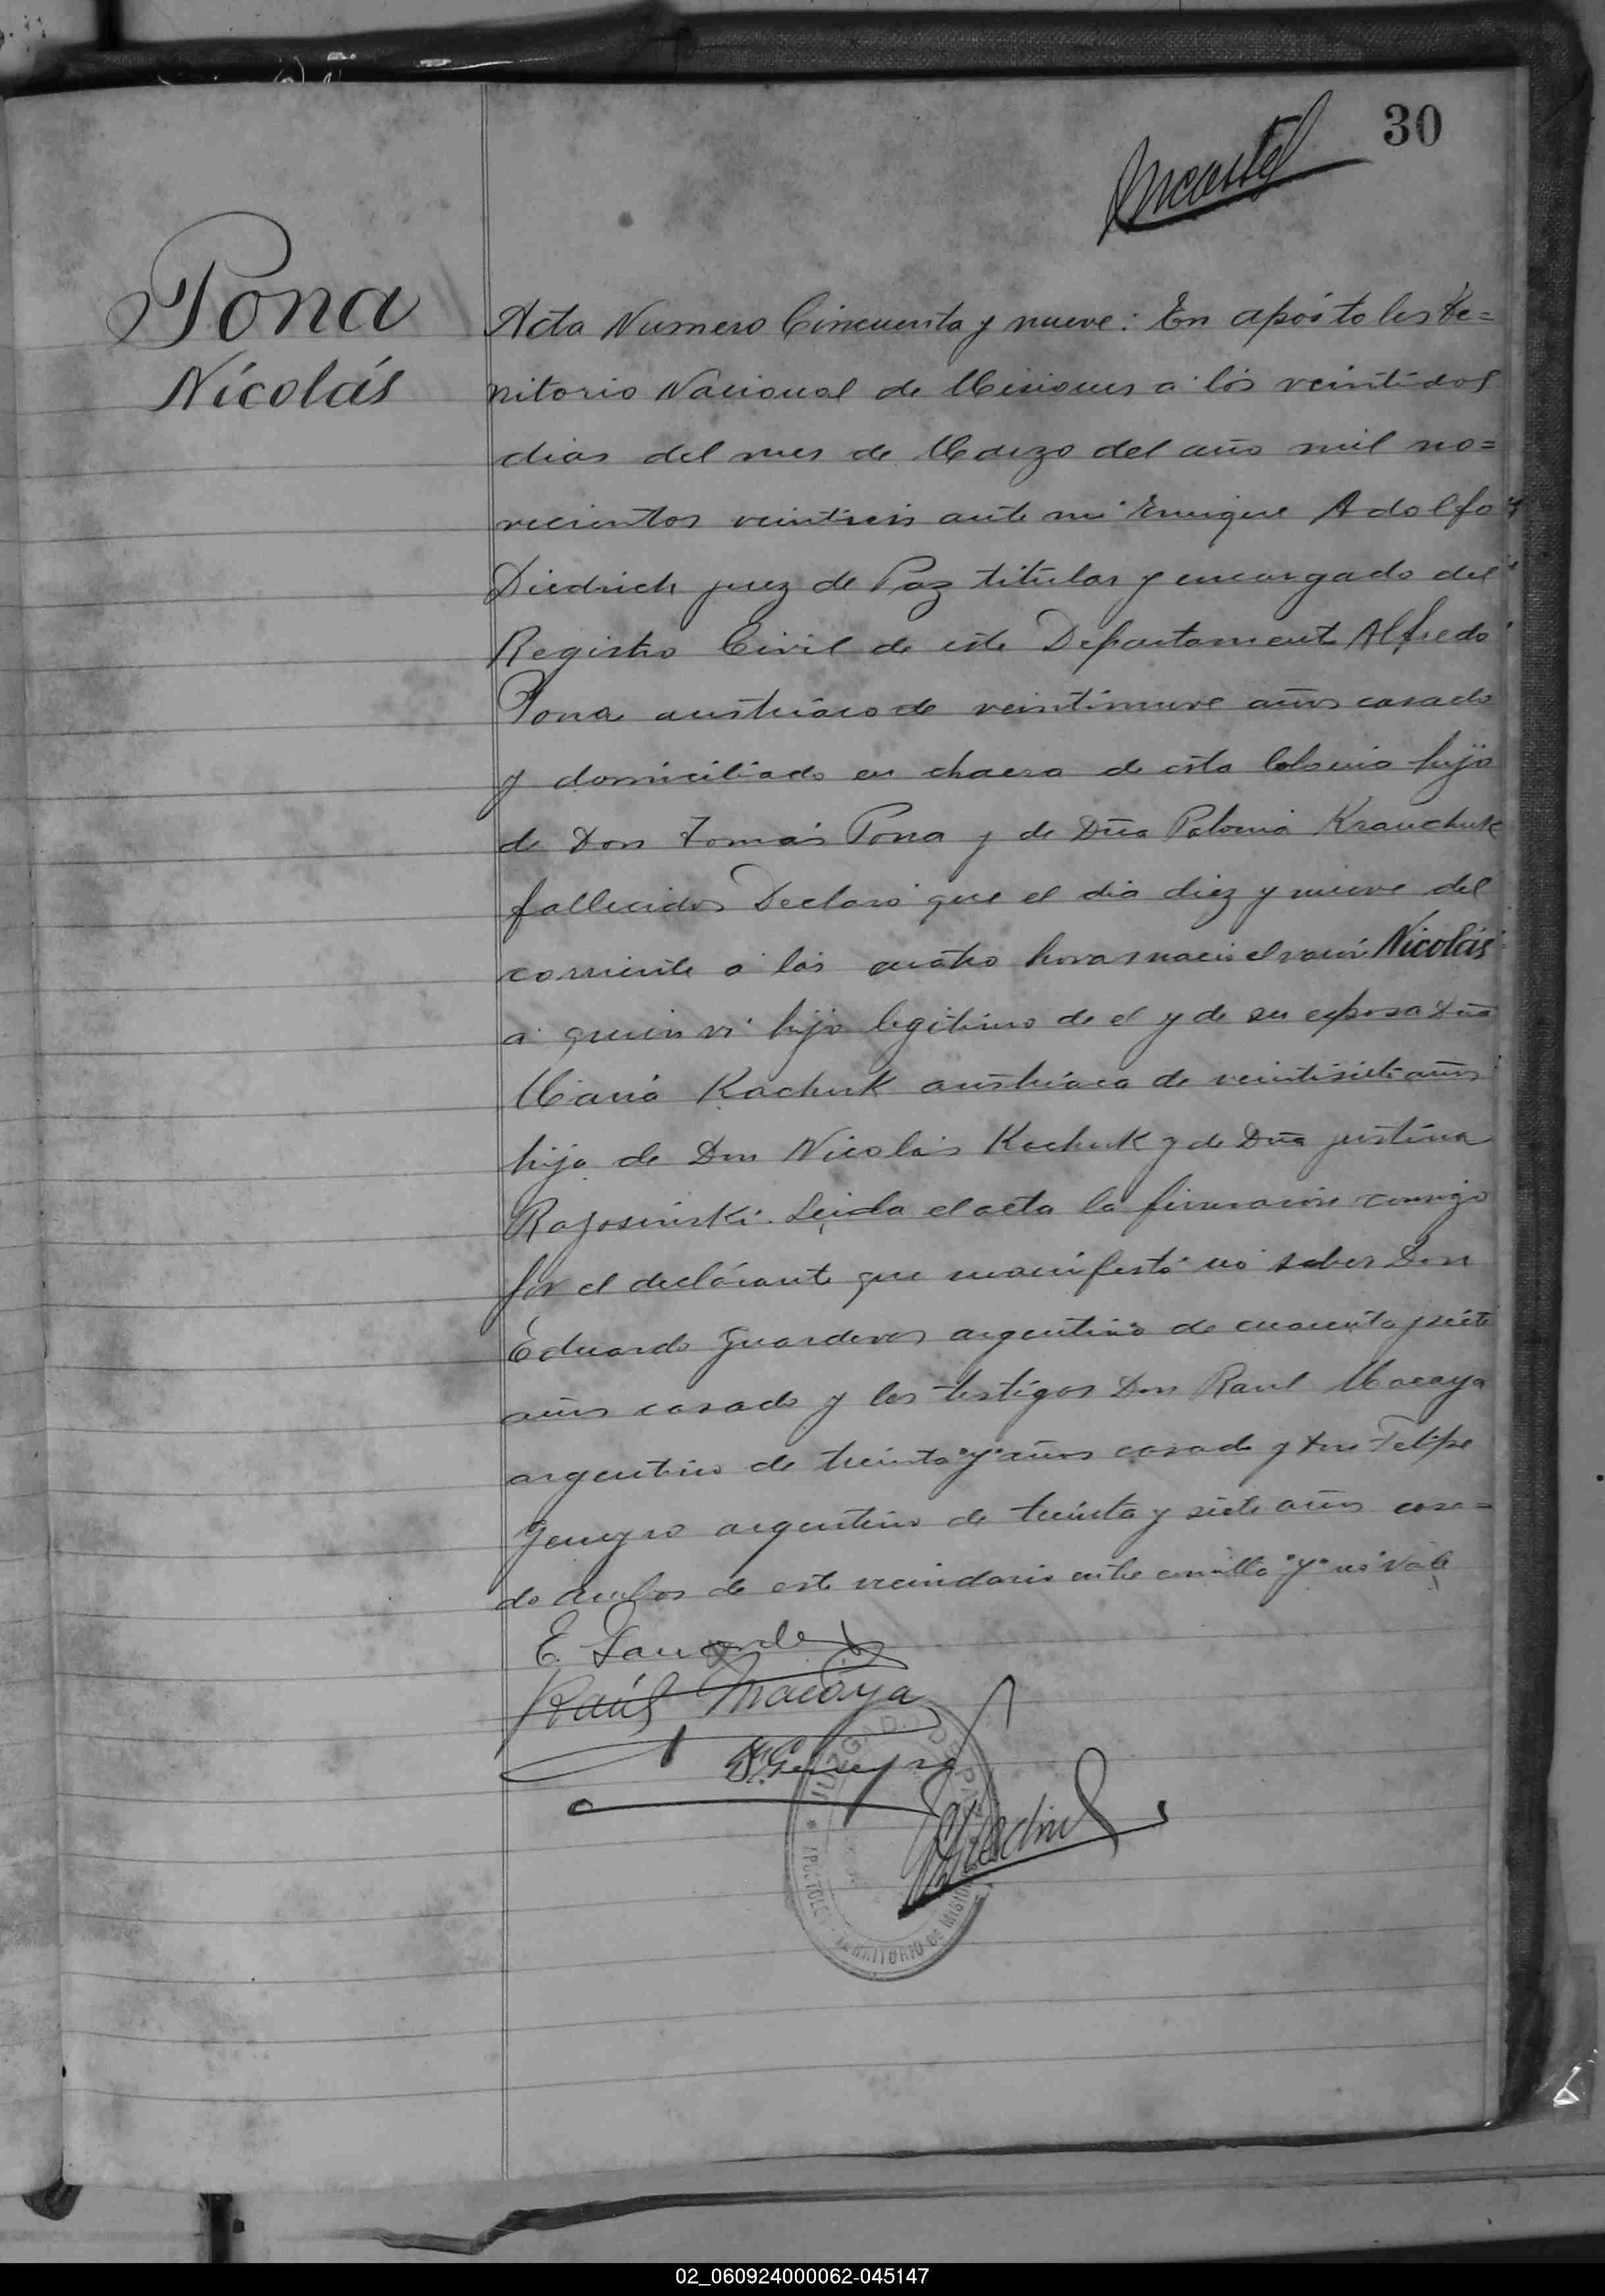 30
Pona
Nicolás
Acta Numero Cincuenta y nueve: En apóstoles te=
rritorio Nacional de Misiones a los veintidos
dias del mes de Marzo del año mil no=
vecientos veintiseis ante mi Enrique Adolfo
Diedrich juez de Paz titular y encargado del
Registro Civil de este Departament Alfredo
Pona austriaco de veintinueve años casado
y domiciliado en chacra de esta Colonia hijo
de Don Tomás Pona y de Dña Palonia Krauchuk
fallecidos Declaró que el dia diez y nueve del
corriente a las cuatro horas nació el varón Nicolás
a quien vi hijo legitimo de el y de su esposa Dña
Maria Kachuk austriaca de veintisiete años
hija de Don Nicolás Kachuk y de Dña justina
Rajosinski. Leida el acta la firmaron conmigo
por el declarante que manifestó no saber Don
Eduardo Guarderas argentino de cuarenta y siete
años casado y los testigos Don Raul Macaya
argentino de treinta "y" años casado y Don Felipe
Geneyro argentino de treinta y siete años casa=
do ambos de este vecindario entre comilla "y" no vale
Raúl Macaya
F. Geneyro
JUZGADO DE PAZ
APOSTOLES TERRITORIO DE MISIONES
02_060924000062-045147